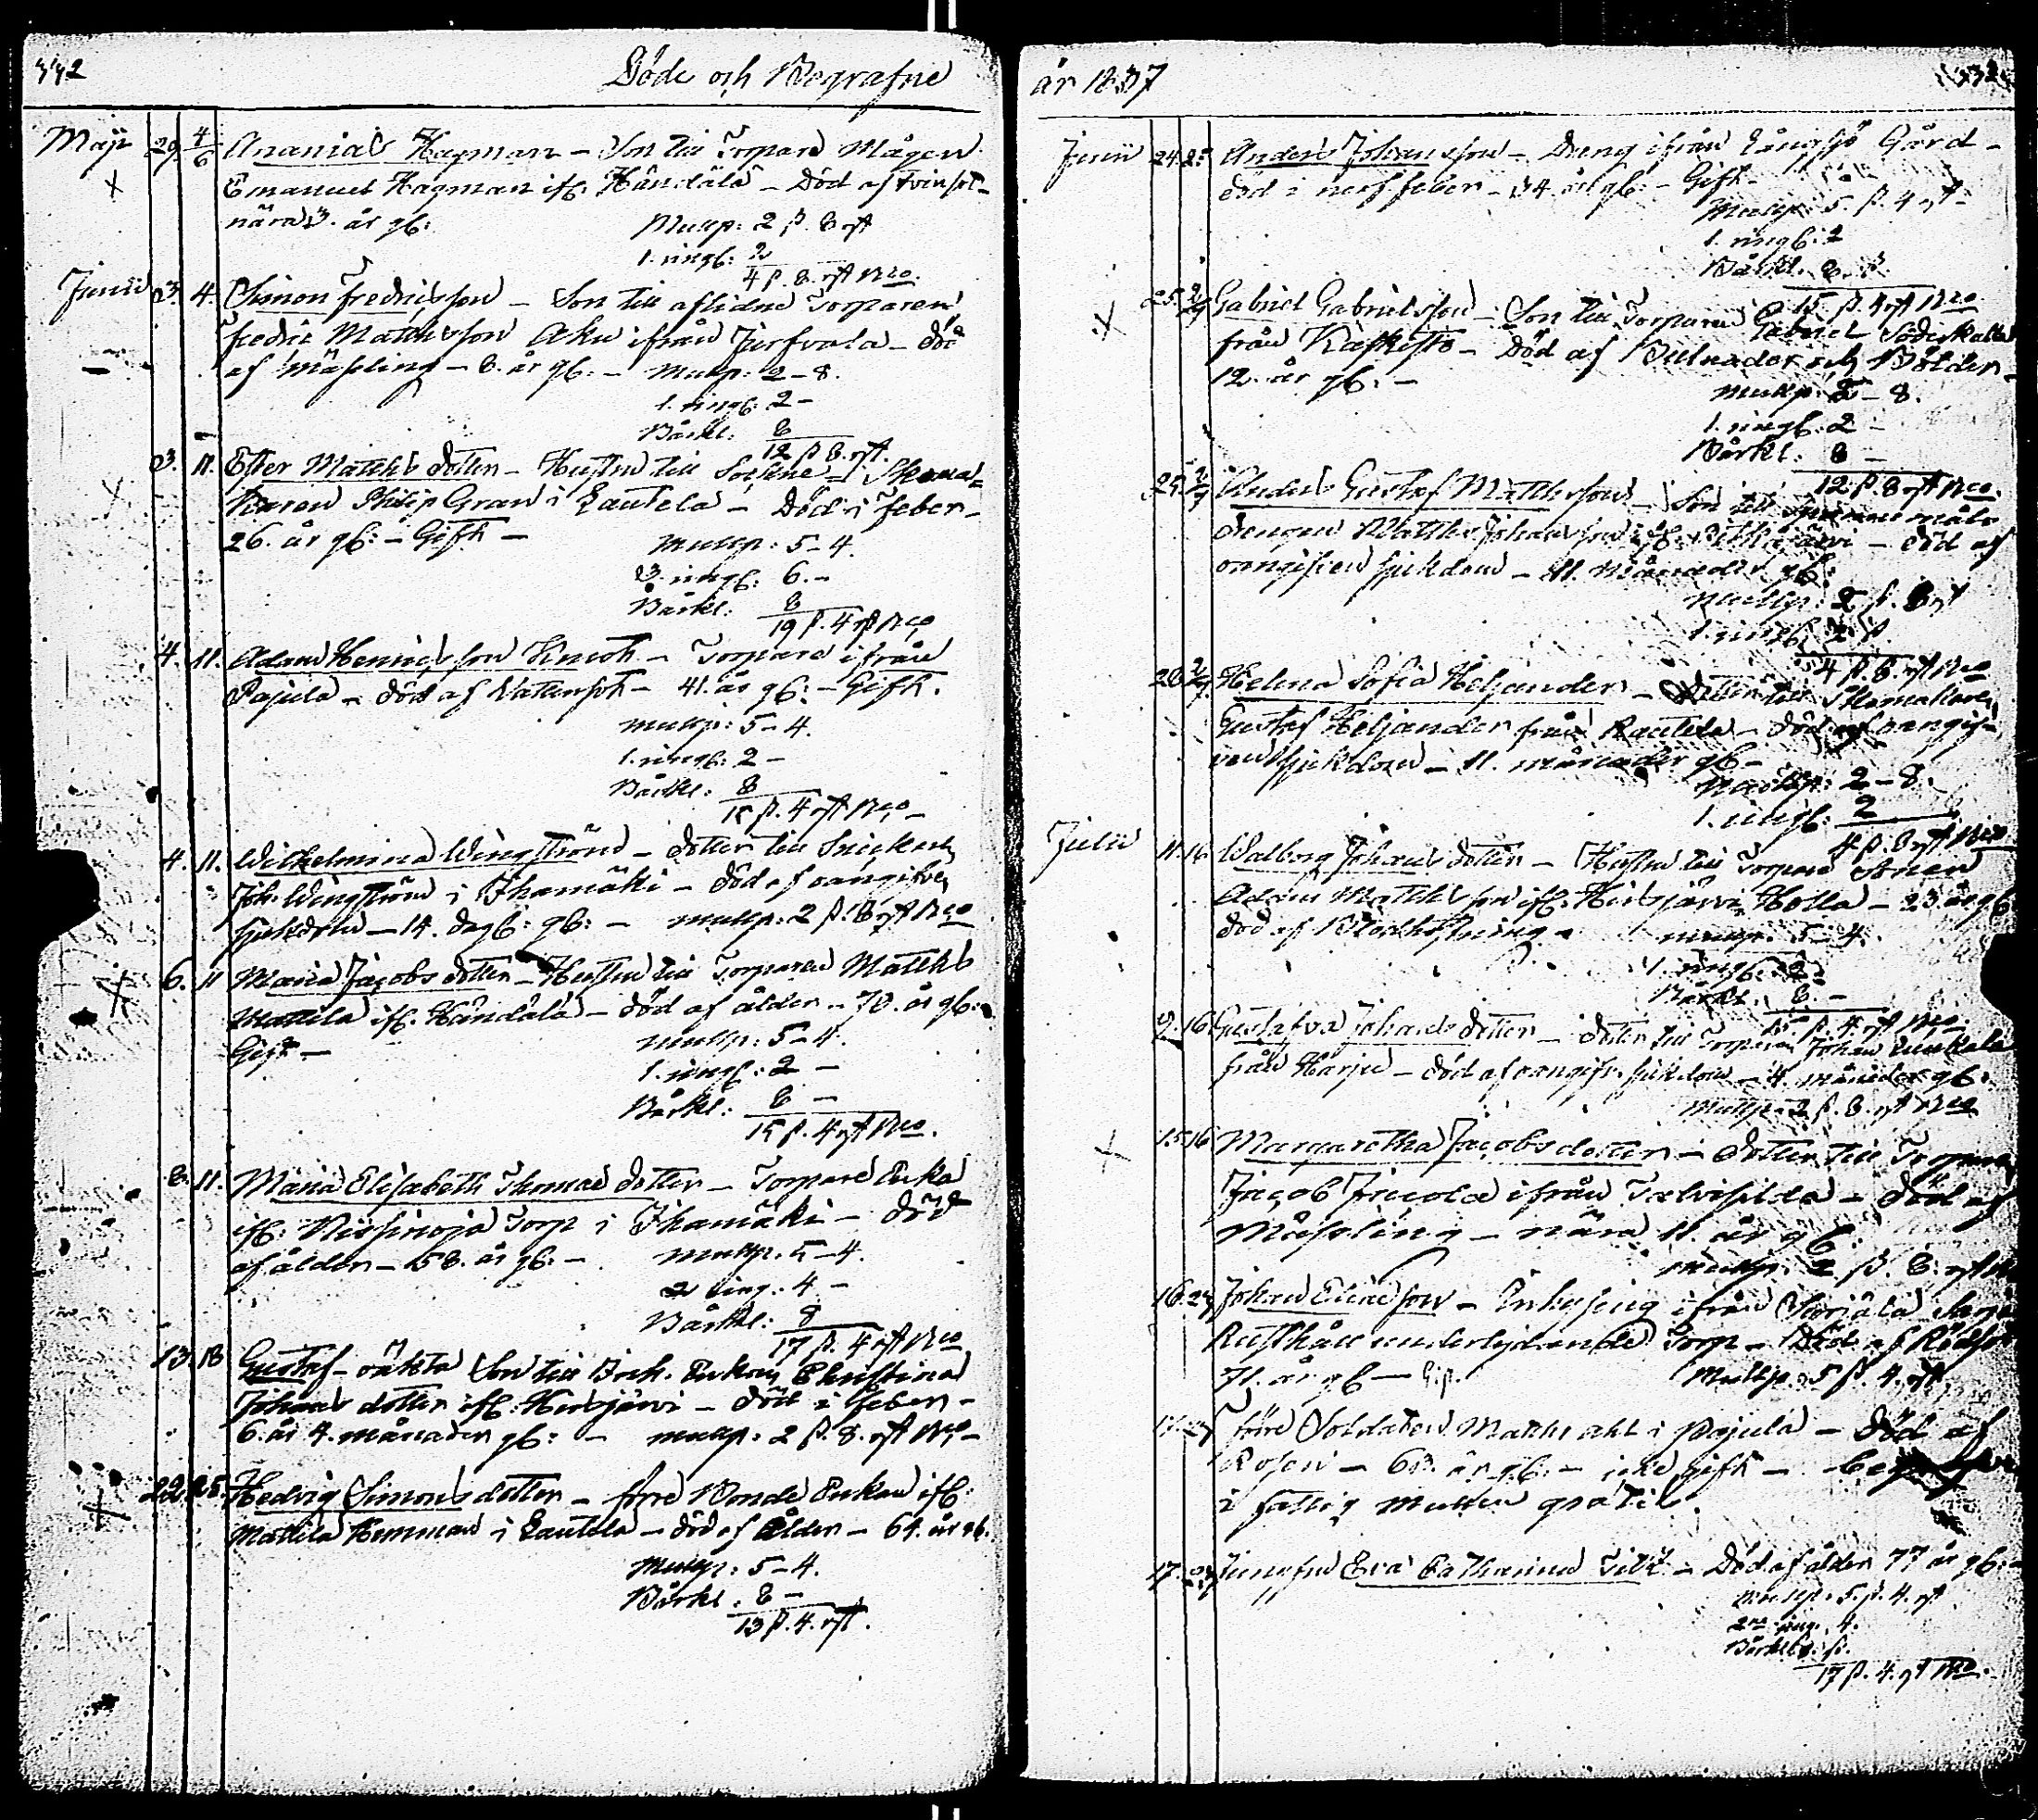 Döde och Begrafne
Maji 29 4/6 Ananias Hagman – Son till Torpare Mågen
Emanuel Hagman ifr: Håndälä – Död af Tvinsot –
nära 3. år gb:
Mullp: 2 ß. 8 rst
1. ringn: 2
4 ß. 8. rst Bco.
Junii 3. 4. Simon Fredricsson – Son till aflidne Torparen
Fredric Matthsson Aku ifrån Jurfvala – död
af mässling – 8. år gb: – Mullp: 2–8.
1. ringn: 2 –
Bårkl: 8
12 ß 8. rst.
3. 11. Ester Matths dotter – Hustru till Sockne-Skoma-
karen Philip Gran i Lautela – Död i feber –
26. år gb: – Gift –
Mullp: 5–4.
3. ringn: 6. –
Bårkl: 8
19 ß. 4 rst Bco
4. 11. Adam Henricsson – Torpare ifrån
Pajula – död af Vattensot – 41. år gb: – Gift.
Mullp: 5–4.
1. ringn: 2 –
Bårkl: 8
15 ß. 4 rst Bco –
4. 11. Wilhelmina Wingström – dotter till Snickaren
Joh. Wingström i Ihamäki – död af oangifven
sjukdom – 14. dagr: gb: – Mullp: 2 ß. 8 rst Bco
6. 11 Maria Jacobs dotter – Hustru till Torparen Matths
Mattila ifr. Håndälä – död af ålder – 70. år gb:
Gift –
Mullp: 5–4.
1. ringn: 2 –
Bårkl: 8 –
15 ß. 4 rst Bco.
8. 11. Maria Elisabeth Thomas dotter – Torpare Enka
ifr: Nissinoja Torp i Ihamäki – död
af ålder – 58. år gb: – Mullp. 5–4.
2 ring: 4 –
Bårkl: 8
17 ß. 4 rst Bco
13. 18 Gustaf – oäkta Son till Inh. Enkan Christina
Johans dotter ifr: Hirsjärvi – död i feber –
6. år 4. månader gb: – Mullp: 2 ß. 8. rst Bco –
22. 25. Hedvig Simons dotter – förre Bonde Enkan ifr:
Mattila Hemman i Lautela – död af ålder – 64. år gb:
Mullp: 5–4.
Bårkl: 8 –
13 ß. 4. rst.
år 1837
Junii 24. 25 Anders Johansson – Dreng ifrån Långsjö Gård –
död i nerf feber – 34. år gb: – Gift –
Mullp: 5. ß. 4 rst –
1. ringn: 2
Bårkl. 8. ß
15. ß. 4 rst Bco
25. 2/7 Gabriel Gabrielsson – Son till Torparen Gabriel
från Kaskisto – Död af Bulnader och Bölder –
12. år gb: –
Mullp: 2–8.
1. ringn: 2 –
Bårkl: 8 –
12 ß. 8 rst Bco.
25. 2/7 Anders Gustaf Matthsson – Son till
drengen Matths Johansson – död af
oangifven sjukdom – 11. månader gb:
Mullp: 2 ß. 8 rst
1. ringn: 2 ß
4 ß. 8. rst Bco
28. 2/7. Helena Sofia Heljander – Dotter till Skomakaren
Gustaf Heljander från Rautela – död af oangif-
ven sjukdom – 11. månader gb –
Mullp: 2–8.
1. ringn: 2
4 ß. 8 rst Bco
Julii 11. 16 Walborg Johans dotter – Hustru till Torpare Sonen
Adam Matthsson ifr: Hirsjärvi Holla – 23 år gb
död af Blodhostning –
Mullp. 5–4.
1. ringn: 2
Bårkl. 8. –
15 ß. 4. rst Bco.
9. 16 Gustafva Johans dotter – dotter till Torparen Johan
från Harju – död af oangifv. sjukdom – 4. månader gb:
Mullp: 2 ß. 8. rst Bco
15 16 Margaretha Jacobsdotter – dotter till Torparen
Jacob Jacola ifrån – död af
Mässling – nära 11. år gb:
Mullp: 2 ß. 8. rst
16. 23 Johan Eliasson – Inhysing ifrån
Rusthåll underlydande Torp – Död af
71. år gb – Gift. Mullp: 5 ß. 4. rst
17. 23 förre Soldaten Matths Ahl i Pajula – död af
Rosen – 63. år gb: – icke gift –
i fattig mullen gratis.
17. 23 Jungfru Eva Catharina – Död af ålder 77 år gb: –
Mullp: 5. ß. 4. rst
2ne ring. 4.
Bårkl 8 ß.
17 ß. 4. rst Bco.